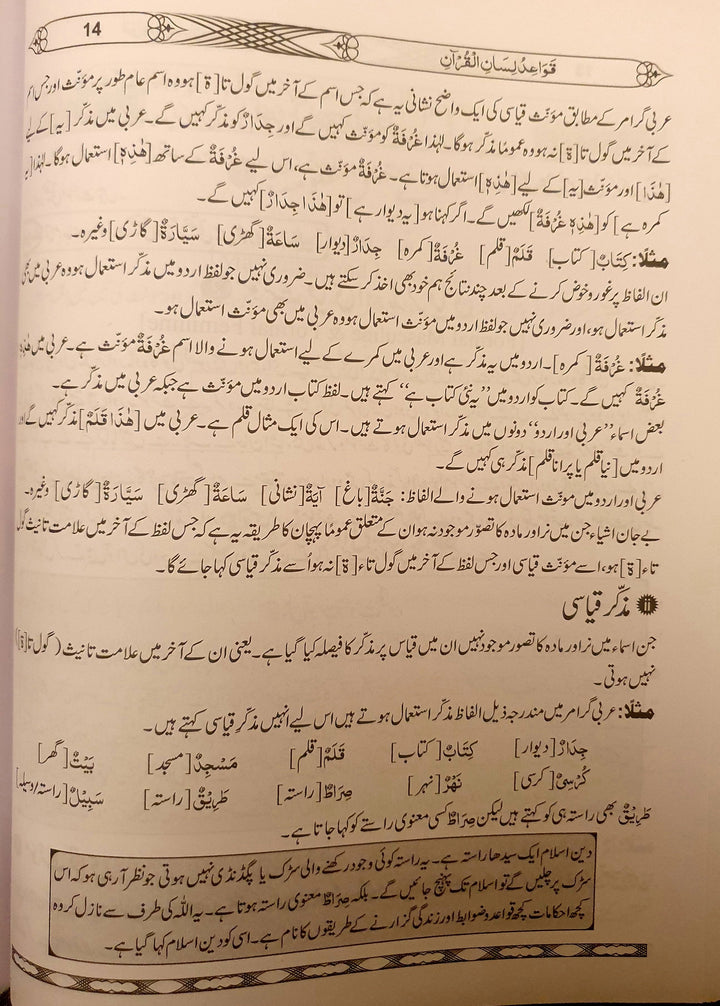 14
قَوَاعِدُ لِسَانِ الْقُرْآنِ
عربی گرامر کے مطابق مؤنث قیاسی کی ایک واضح نشانی یہ ہے کہ جس اسم کے آخر میں گول تا [ة] ہو وہ اسم عام طور پر مؤنث اور جس اسم
کے آخر میں گول تا [ة] نہ ہو وہ عموماً مذکّر ہوگا۔ لہٰذا غُرْفَةٌ کو مؤنث کہیں گے اور جِدَارٌ کو مذکّر کہیں گے۔ عربی میں مذکّر [یہ] کے لیے
[هٰذَا] اور مؤنث [یہ] کے لیے [هٰذِهٖ] استعمال ہوتا ہے۔ غُرْفَةٌ مؤنث ہے، اس لیے غُرْفَةٌ کے ساتھ [هٰذِهٖ] استعمال ہوگا۔ لہٰذا [یہ
کمرہ ہے] کو [هٰذِهٖ غُرْفَةٌ] لکھیں گے۔ اگر کہنا ہو [یہ دیوار ہے] تو [هٰذَا جِدَارٌ] کہیں گے۔
مثلًا: كِتَابٌ [کتاب] قَلَمٌ [قلم] غُرْفَةٌ [کمرہ] جِدَارٌ [دیوار] سَاعَةٌ [گھڑی] سَيَّارَةٌ [گاڑی] وغیرہ۔
ان الفاظ پر غور و خوض کرنے کے بعد چند نتائج ہم خود بھی اخذ کر سکتے ہیں۔ ضروری نہیں جو لفظ اردو میں مذکّر استعمال ہو وہ عربی میں بھی
مذکّر استعمال ہو، اور ضروری نہیں جو لفظ اردو میں مؤنث استعمال ہو وہ عربی میں بھی مؤنث استعمال ہو۔
مثلًا: غُرْفَةٌ [کمرہ]۔ اردو میں یہ مذکّر ہے اور عربی میں کمرے کے لیے استعمال ہونے والا اسم غُرْفَةٌ مؤنث ہے۔ عربی میں هٰذِهٖ
غُرْفَةٌ کہیں گے۔ کتاب کو اردو میں ”یہ نئی کتاب ہے“ کہتے ہیں۔ لفظ کتاب اردو میں مؤنث ہے جبکہ عربی میں مذکّر ہے۔
بعض اسماء ”عربی اور اردو“ دونوں میں مذکّر استعمال ہوتے ہیں۔ اس کی ایک مثال قلم ہے۔ عربی میں [هٰذَا قَلَمٌ] مذکّر کہیں گے اور
اردو میں [نیا قلم یا پرانا قلم] مذکّر ہی کہیں گے۔
عربی اور اردو میں مؤنث استعمال ہونے والے الفاظ: جَنَّةٌ [باغ] آيَةٌ [نشانی] سَاعَةٌ [گھڑی] سَيَّارَةٌ [گاڑی] وغیرہ۔
بے جان اشیاء جن میں نر اور مادہ کا تصوّر موجود نہ ہو ان کے متعلق عموماً پہچان کا طریقہ یہ ہے کہ جس لفظ کے آخر میں علامت تانیث گول
تاء [ة] ہو، اسے مؤنث قیاسی اور جس لفظ کے آخر میں گول تاء [ة] نہ ہو اُسے مذکّر قیاسی کہا جائے گا۔
ii مذکّر قیاسی
جن اسماء میں نر اور مادہ کا تصور موجود نہیں ان میں قیاس پر مذکّر کا فیصلہ کیا گیا ہے۔ یعنی ان کے آخر میں علامت تانیث (گول تا [ة])
نہیں ہوتی۔
مثلًا: عربی گرامر میں مندرجہ ذیل الفاظ مذکّر استعمال ہوتے ہیں اس لیے انہیں مذکّرِ قیاسی کہتے ہیں۔
جِدَارٌ [دیوار] كِتَابٌ [کتاب] قَلَمٌ [قلم] مَسْجِدٌ [مسجد] بَيْتٌ [گھر]
كُرْسِيٌّ [کرسی] نَهْرٌ [نہر] صِرَاطٌ [راستہ] طَرِيْقٌ [راستہ] سَبِيْلٌ [راستہ/وسیلہ]
طَرِيْقٌ بھی راستہ ہی کو کہتے ہیں لیکن صِرَاطٌ کسی معنوی راستے کو کہا جاتا ہے۔
دین اسلام ایک سیدھا راستہ ہے۔ یہ راستہ کوئی وجود رکھنے والی سڑک یا پگڈنڈی نہیں ہوتی جو نظر آ رہی ہو کہ اس
سڑک پر چلیں گے تو اسلام تک پہنچ جائیں گے۔ بلکہ صِرَاطٌ معنوی راستہ ہوتا ہے۔ یہ اللہ کی طرف سے نازل کردہ
کچھ احکامات کچھ قواعد و ضوابط اور زندگی گزارنے کے طریقوں کا نام ہے۔ اسی کو دین اسلام کہا گیا ہے۔